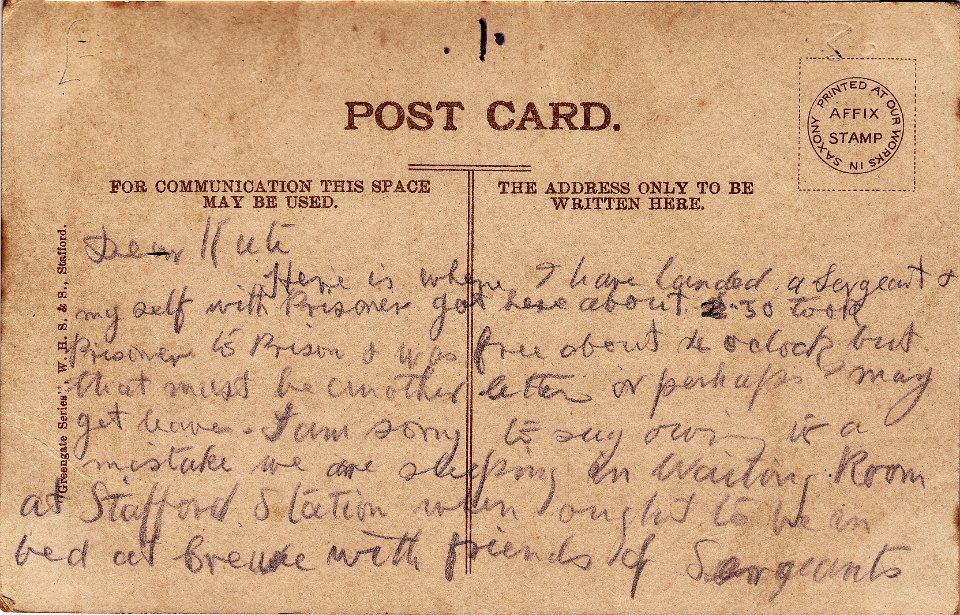 POST CARD.
PRINTED AT OUR WORKS IN SAXONY
AFFIX
STAMP
FOR COMMUNICATION THIS SPACE
MAY BE USED.
THE ADDRESS ONLY TO BE
WRITTEN HERE.
"Greengate Series", W. H. S. & S., Stafford.
Dear
Here is where I have landed a Sergeant &
my self with Prisoner got here about 2.30 took
Prisoner to Prison & was free about 4 oclock but
that must be another letter or perhaps I may
get leave. I am sorry to say owing to a
mistake we are sleeping in Waiting Room
at Stafford Station when ought to be in
bed at Crewe with friends of Sergeants